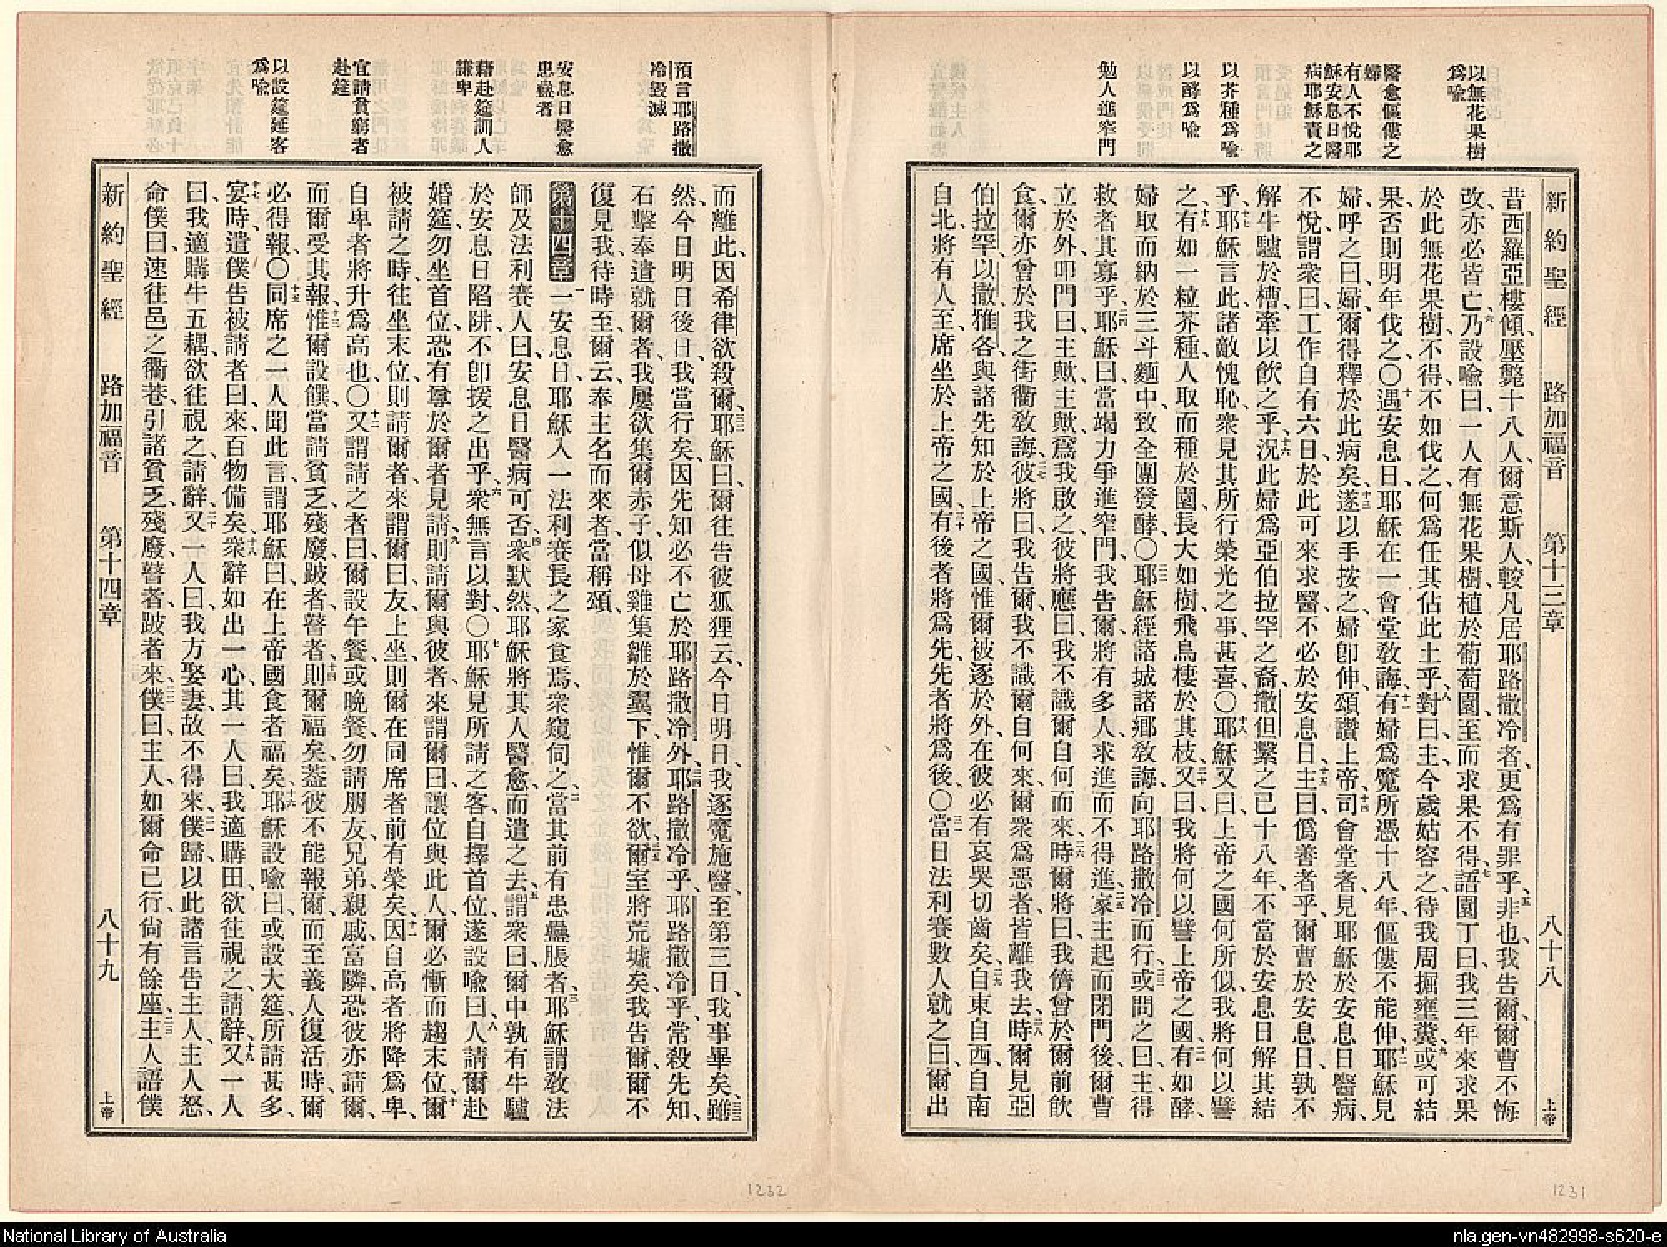 以無花果樹
為喻
醫愈傴僂之
婦
有人不悅耶
穌安息日醫
病耶穌責之
以芥種為喻
以酵為喻
勉人進窄門
新約聖經 路加福音 第十三章 八十八 上帝
昔西羅亞樓傾、壓斃十八人、爾意斯人、較凡居耶路撒冷者、更為有罪乎、五非也、我告爾、爾曹不悔
改、亦必皆亡、六乃設喻曰、一人有無花果樹、植於葡萄園、至而求果不得、七語園丁曰、我三年來求果
於此無花果樹、不得、不如伐之、何為任其佔此土乎、八對曰、主、今歲姑容之、待我周掘壅糞、九或可結
果、否則明年伐之、〇十遇安息日、耶穌在一會堂教誨、十一有婦為魔所憑十八年、傴僂不能伸、十二耶穌見
婦、呼之曰、婦、爾得釋於此病矣、十三遂以手按之、婦卽伸、頌讚上帝、十四司會堂者、見耶穌於安息日醫病、
不悅、謂衆曰、工作自有六日、於此可來求醫、不必於安息日、十五主曰、僞善者乎、爾曹於安息日、孰不
解牛驢於槽、牽以飲之乎、十六況此婦為亞伯拉罕之裔、撒但繫之已十八年、不當於安息日解其結
乎、十七耶穌言此、諸敵愧恥、衆見其所行榮光之事、甚喜、〇十八耶穌又曰、上帝之國何所似、我將何以譬
之、十九有如一粒芥種、人取而種於園、長大如樹、飛鳥棲於其枝、二十又曰、我將何以譬上帝之國、二一有如酵、
婦取而納於三斗麵中、致全團發酵、〇二二耶穌經諸城諸鄉教誨、向耶路撒冷而行、二三或問之曰、主、得
救者其寡乎、二四耶穌曰、當竭力爭進窄門、我告爾、將有多人求進而不得進、二五家主起而閉門後、爾曹
立於外、叩門曰、主歟主歟、為我啟之、彼將應曰、我不識爾自何而來、二六時爾將曰、我儕曾於爾前飲
食、爾亦曾於我之街衢教誨、二七彼將曰、我告爾、我不識爾自何來、爾衆為惡者、皆離我去、二八時爾見亞
伯拉罕、以撒、雅各、與諸先知於上帝之國、惟爾被逐於外、在彼必有哀哭切齒矣、二九自東自西、自南
自北、將有人至、席坐於上帝之國、三十有後者將為先、先者將為後、〇三一當日法利賽數人就之曰、爾出
預言耶路撒
冷毀滅
安息日醫愈
患蠱者
藉赴筵訓人
謙卑
宜請貧窮者
赴筵
以設筵延客
為喻
而離此、因希律欲殺爾、三二耶穌曰、爾往告彼狐狸云、今日明日、我逐魔施醫、至第三日、我事畢矣、三三雖
然、今日明日後日、我當行矣、因先知必不亡於耶路撒冷外、三四耶路撒冷乎、耶路撒冷乎、常殺先知、
石擊奉遣就爾者、我屢欲集爾赤子、似母雞集雛於翼下、惟爾不欲、三五爾室將荒墟矣、我告爾、爾不
復見我、待時至、爾云、奉主名而來者、當稱頌、
第十四章 一安息日、耶穌入一法利賽長之家食焉、衆窺伺之、二當其前有患蠱脹者、三耶穌謂教法
師及法利賽人曰、安息日醫病可否、四衆默然、耶穌將其人醫愈而遣之去、五謂衆曰、爾中孰有牛驢
於安息日陷阱、不卽援之出乎、六衆無言以對、〇七耶穌見所請之客自擇首位、遂設喻曰、八人請爾赴
婚筵、勿坐首位、恐有尊於爾者見請、九則請爾與彼者、來謂爾曰、讓位與此人、爾必慚而趨末位、十爾
被請之時、往坐末位、則請爾者來、謂爾曰、友、上坐、則爾在同席者前有榮矣、十一因自高者將降為卑、
自卑者將升為高也、〇十二又謂請之者曰、爾設午餐或晚餐、勿請朋友、兄弟、親戚、富隣、恐彼亦請爾、
而爾受其報、十三惟爾設饌、當請貧乏、殘廢、跛者、瞽者、十四則爾福矣、蓋彼不能報爾、而至義人復活時、爾
必得報、〇十五同席之一人聞此言、謂耶穌曰、在上帝國食者福矣、十六耶穌設喻曰、或設大筵、所請甚多、
十七宴時、遣僕告被請者曰、來、百物備矣、十八衆辭如出一心、其一人曰、我適購田、欲往視之、請辭、十九又一人
曰、我適購牛五耦、欲往視之、請辭、二十又一人曰、我方娶妻、故不得來、二一僕歸、以此諸言告主人、主人怒、
命僕曰、速往邑之衢巷、引諸貧乏、殘廢、瞽者、跛者來、二二僕曰、主人、如爾命已行、尙有餘座、二三主人語僕
新約聖經 路加福音 第十四章 八十九 上帝
1232
1231
National Library of Australia
nla.gen-vn482998-s620-e